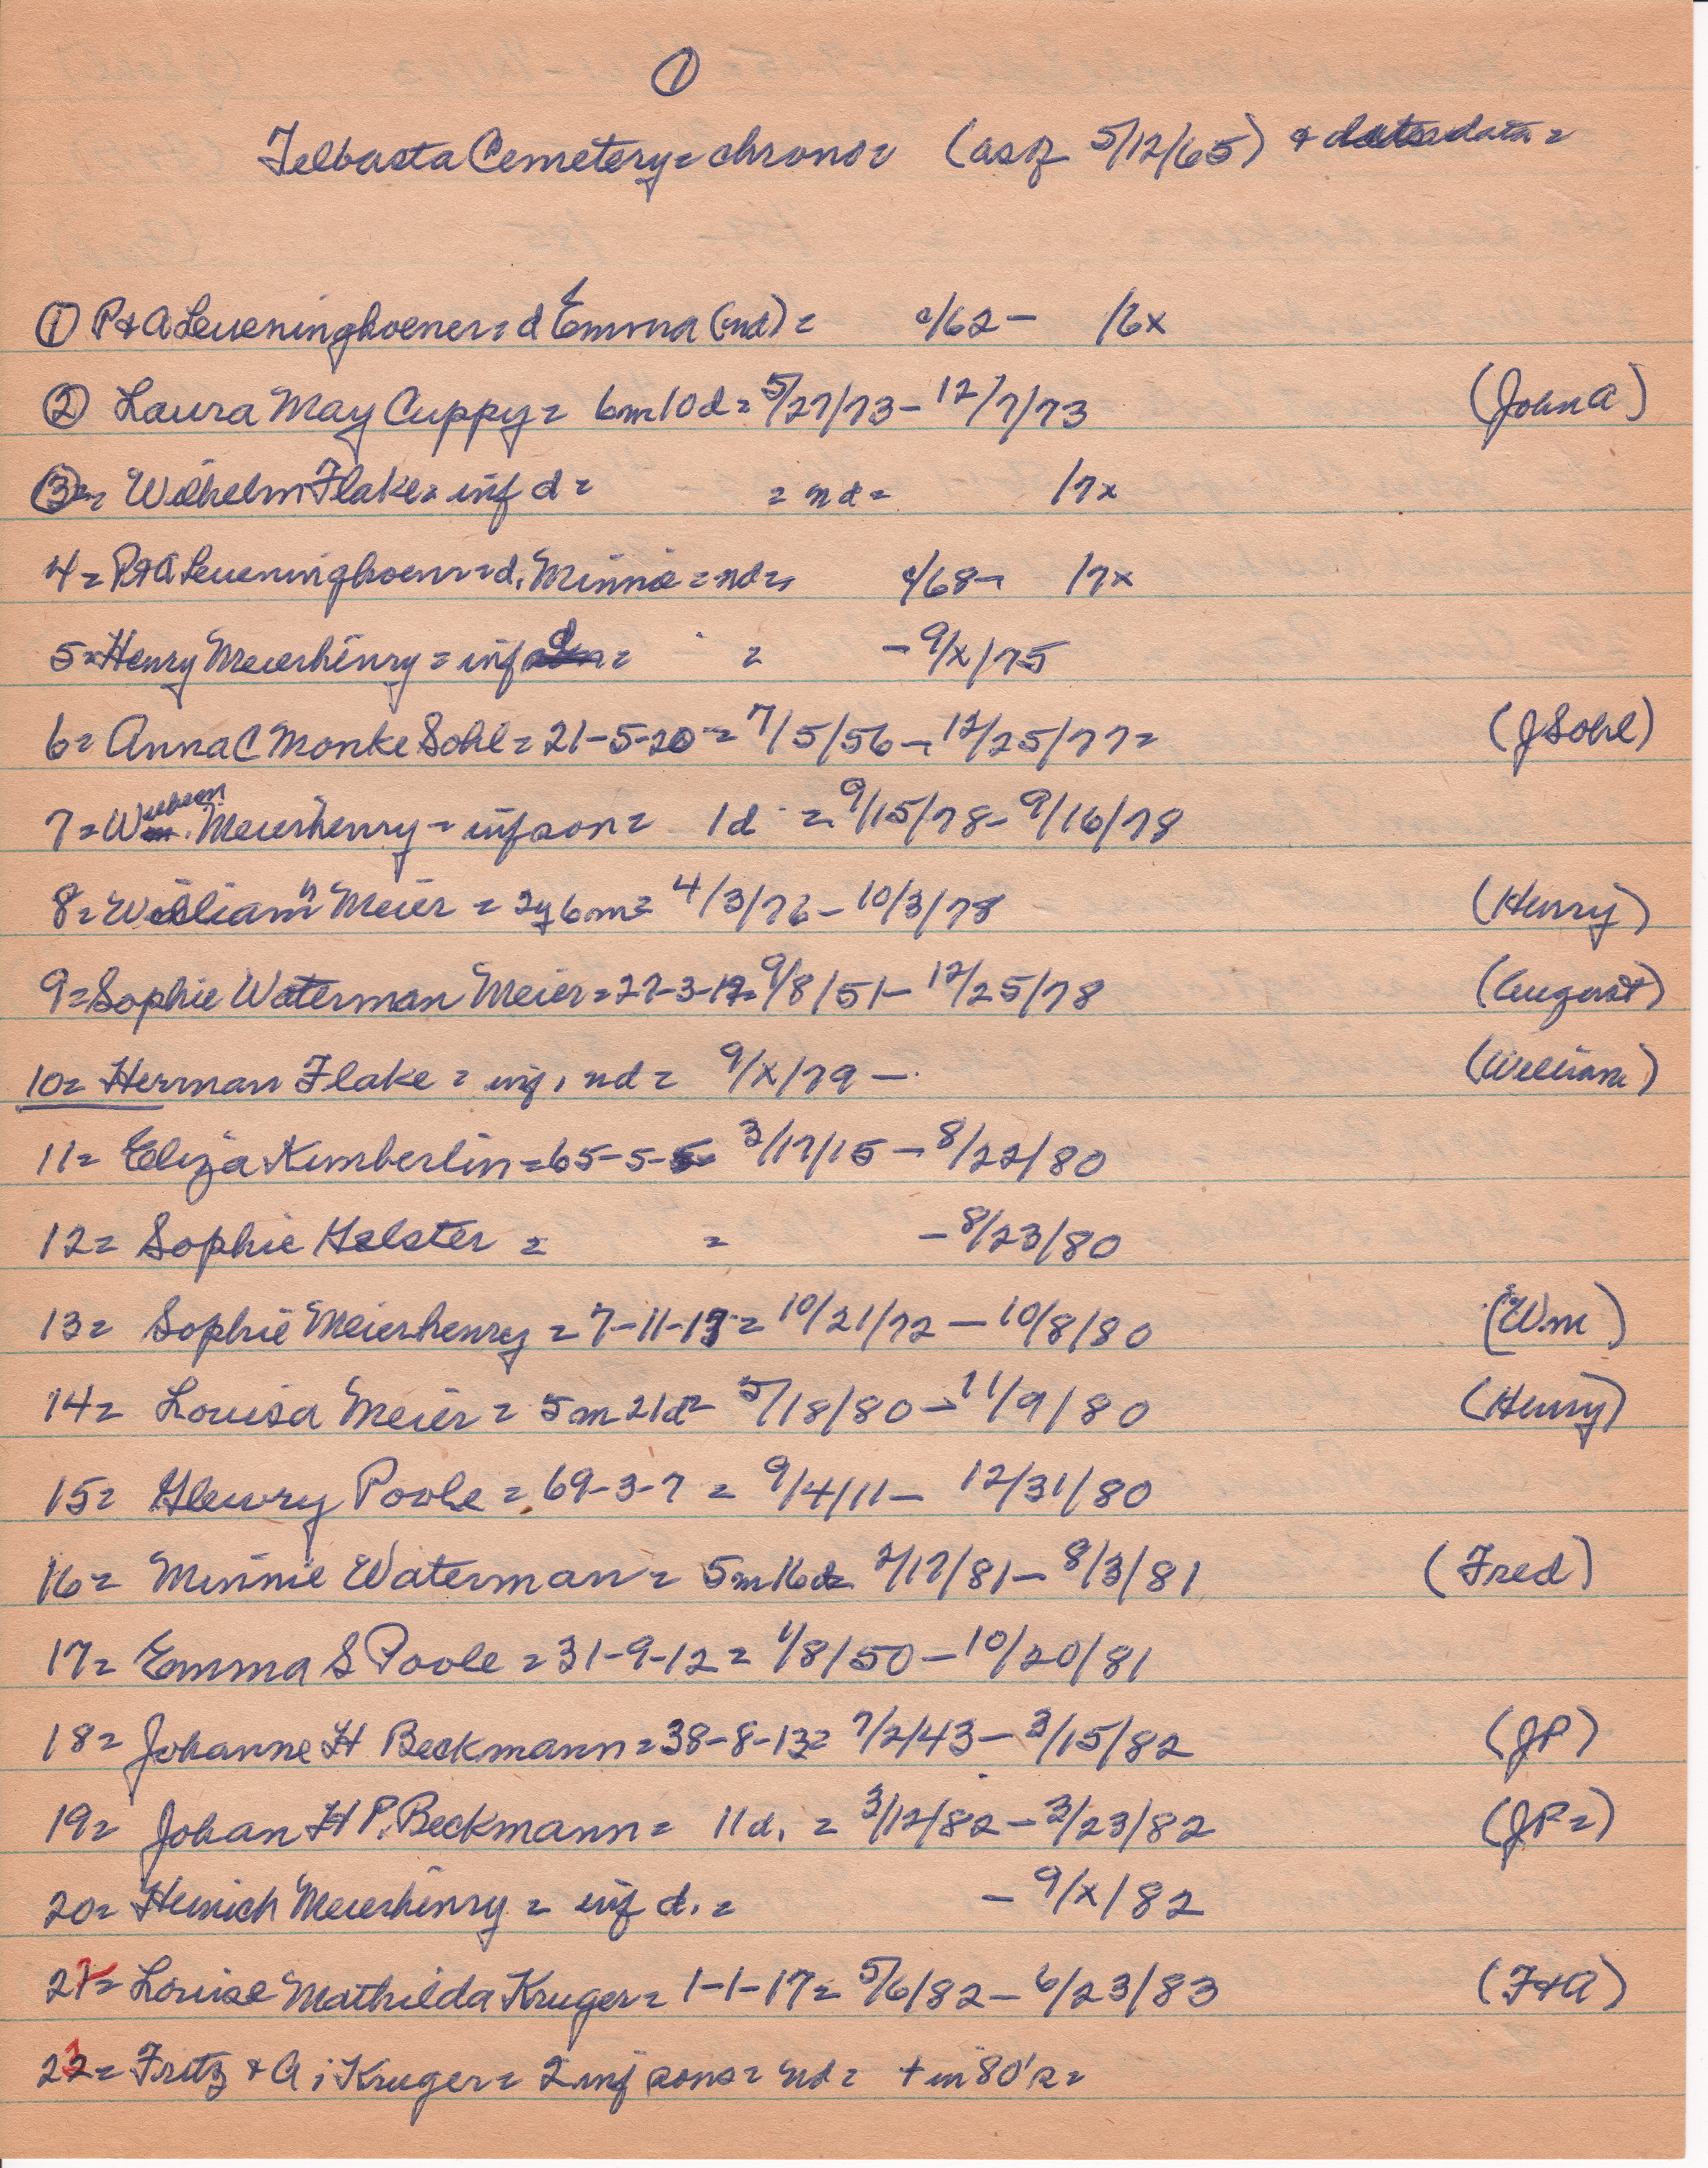 ①
Telbasta Cemetery = chrono = (as of 5/12/65) & data =
① P & A Leveninghoener = d Emma (nd) = c/62 - /6x
② Laura May Cuppy = 6m10d = 5/27/73 - 12/7/73 (John A)
③ = Wilhelm Flake = inf d = = nd = /7x
4 = P & A Leveninghoener = d. Minnie = nd = c/68 - /7x
5 = Henry Meierhenry = inf d = = - 9/x/75
6 = Anna C Monke Sohl = 21-5-20 = 7/5/56 - 12/25/77 = (J Sohl)
7 = Wilhelm Meierhenry = inf son = 1d = 9/15/78 - 9/16/78
8 = William Meier = 2y6m = 4/3/76 - 10/3/78 (Henry)
9 = Sophie Waterman Meier = 27-3-17 = 9/8/51 - 12/25/78 (August)
10 = Herman Flake = inf, nd = 9/x/79 - (William)
11 = Eliza Kimberlin = 65-5-5 = 3/17/15 - 8/22/80
12 = Sophie Helster = = - 8/23/80
13 = Sophie Meierhenry = 7-11-17 = 10/21/72 - 10/8/80 (Wm)
14 = Louisa Meier = 5m21d = 5/18/80 - 11/9/80 (Henry)
15 = Henry Poole = 69-3-7 = 9/4/11 - 12/31/80
16 = Minnie Waterman = 5m16d = 2/17/81 - 8/3/81 (Fred)
17 = Emma S Poole = 31-9-12 = 1/8/50 - 10/20/81
18 = Johanne H Beckmann = 38-8-13 = 7/2/43 - 3/15/82 (JP)
19 = Johan H P. Beckmann = 11d. = 3/12/82 - 3/23/82 (JP =)
20 = Heinich Meierhenry = inf d. = - 9/x/82
21 = Louise Mathilda Kruger = 1-1-17 = 5/6/82 - 6/23/83 (F & A)
23 = Fritz & A; Kruger = 2 inf sons = nd = + in 80's =